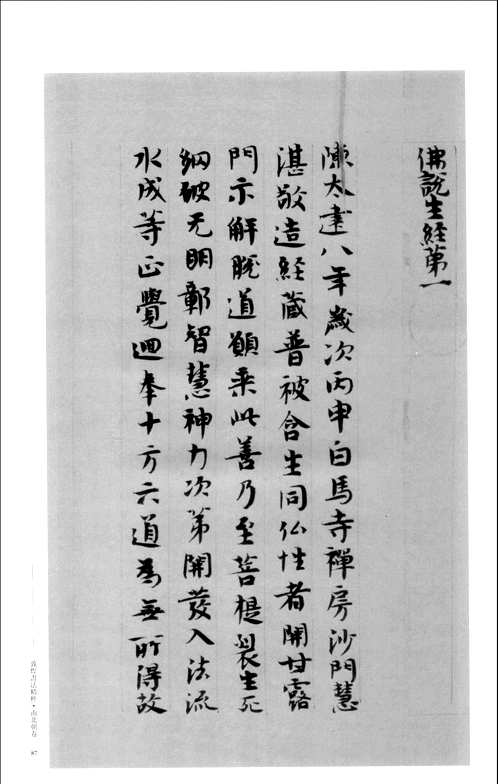 佛說生經第一
陳太建八年歲次丙申白馬寺禪房沙門慧
湛敬造經藏普被含生同仏性者開甘露
門示解脫道願乘此善乃至菩提裂生死
網破无明鄣智慧神力次第開發入法流
水成等正覺迴奉十方六道為無所得故
敦煌書法精粹·南北朝卷
87